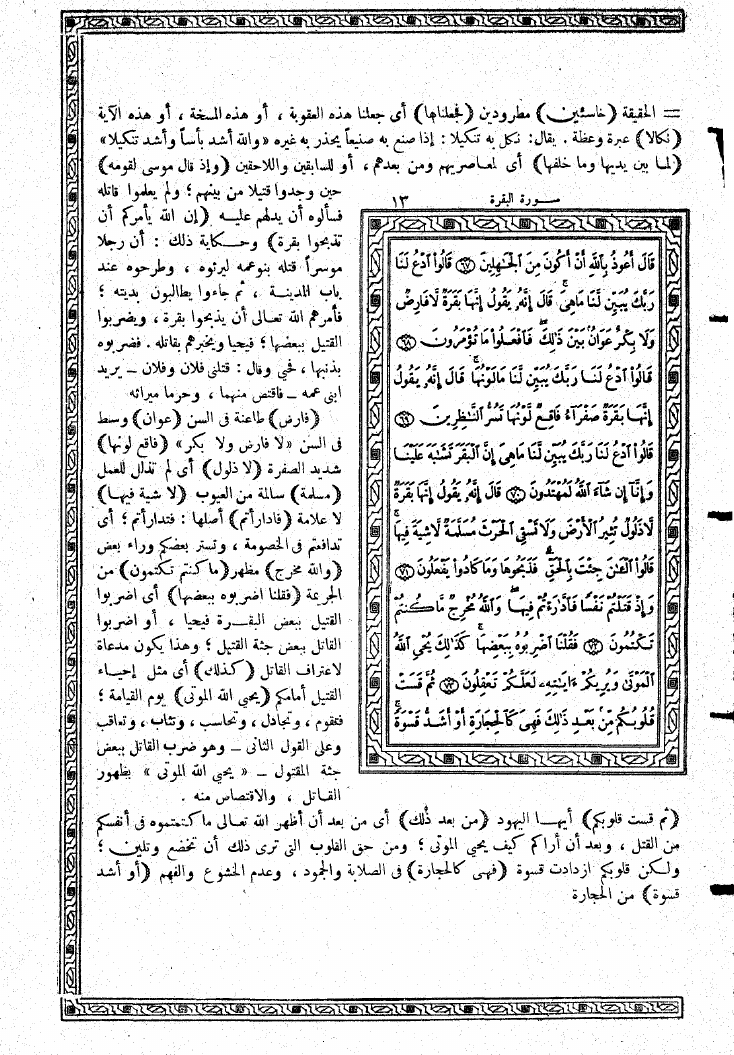 = الحقيقة (خاسئين) مطرودين (فجعلناها) أى جعلنا هذه العقوبة ، أو هذه المسخة ، أو هذه الآية
(نكالا) عبرة وعظة . يقال : نكل به تنكيلا : إذا صنع به صنيعاً يحذر به غيره «والله أشد بأساً وأشد تنكيلا»
(لما بين يديها وما خلفها) أى لمعاصريهم ومن بعدهم ، أو للسابقين واللاحقين (وإذ قال موسى لقومه)
حين وجدوا قتيلا من بينهم ؛ ولم يعلموا قاتله
فسألوه أن يدلهم عليه (إن الله يأمركم أن
تذبحوا بقرة) وحكاية ذلك : أن رجلا
موسراً قتله بنوعمه ليرثوه ، وطرحوه عند
باب المدينة ، ثم جاءوا يطالبون بديته ؛
فأمرهم الله تعالى أن يذبحوا بقرة ، ويضربوا
القتيل ببعضها ؛ فيحيا ويخبرهم بقاتله . فضربوه
بذنبها ، فحي وقال : قتلنى فلان وفلان – يريد
ابنى عمه – فاقتص منهما ، وحرما ميراثه
(فارض) طاعنة فى السن (عوان) وسط
فى السن «لا فارض ولا بكر» (فاقع لونها)
شديد الصفرة (لا ذلول) أى لم تذلل للعمل
(مسلمة) سالمة من العيوب (لا شية فيها)
لا علامة (فادارأتم) أصلها : فتدارأتم ؛ أى
تدافعتم فى الخصومة ، وتستر بعضكم وراء بعض
(والله مخرج) مظهر (ما كنتم تكتمون) من
الجريمة (فقلنا اضربوه ببعضها) أى اضربوا
القتيل ببعض البقرة فيحيا ، أو اضربوا
القاتل ببعض جثة القتيل ؛ وهذا يكون مدعاة
لاعتراف القاتل (كذلك) أى مثل إحياء
القتيل أمامكم (يحيى الله الموتى) يوم القيامة ؛
فتقوم ، وتجادل ، وتحاسب ، وتثاب ، وتعاقب
وعلى القول الثانى – وهو ضرب القاتل ببعض
جثة المقتول – « يحيى الله الموتى » بظهور
القاتل ، والاقتصاص منه .
سورة البقرة ١٣
قَالَ أَعُوذُ بِٱللَّهِ أَنْ أَكُونَ مِنَ ٱلْجَٰهِلِينَ ٦٧ قَالُوا۟ ٱدْعُ لَنَا
رَبَّكَ يُبَيِّن لَّنَا مَا هِىَ ۚ قَالَ إِنَّهُۥ يَقُولُ إِنَّهَا بَقَرَةٌ لَّا فَارِضٌ
وَلَا بِكْرٌ عَوَانٌۢ بَيْنَ ذَٰلِكَ ۖ فَٱفْعَلُوا۟ مَا تُؤْمَرُونَ ٦٨
قَالُوا۟ ٱدْعُ لَنَا رَبَّكَ يُبَيِّن لَّنَا مَا لَوْنُهَا ۚ قَالَ إِنَّهُۥ يَقُولُ
إِنَّهَا بَقَرَةٌ صَفْرَآءُ فَاقِعٌ لَّوْنُهَا تَسُرُّ ٱلنَّٰظِرِينَ ٦٩
قَالُوا۟ ٱدْعُ لَنَا رَبَّكَ يُبَيِّن لَّنَا مَا هِىَ إِنَّ ٱلْبَقَرَ تَشَٰبَهَ عَلَيْنَا
وَإِنَّآ إِن شَآءَ ٱللَّهُ لَمُهْتَدُونَ ٧٠ قَالَ إِنَّهُۥ يَقُولُ إِنَّهَا بَقَرَةٌ
لَّا ذَلُولٌ تُثِيرُ ٱلْأَرْضَ وَلَا تَسْقِى ٱلْحَرْثَ مُسَلَّمَةٌ لَّا شِيَةَ فِيهَا ۚ
قَالُوا۟ ٱلْـَٰٔنَ جِئْتَ بِٱلْحَقِّ ۚ فَذَبَحُوهَا وَمَا كَادُوا۟ يَفْعَلُونَ ٧١
وَإِذْ قَتَلْتُمْ نَفْسًا فَٱدَّٰرَْٰٔتُمْ فِيهَا ۖ وَٱللَّهُ مُخْرِجٌ مَّا كُنتُمْ
تَكْتُمُونَ ٧٢ فَقُلْنَا ٱضْرِبُوهُ بِبَعْضِهَا ۚ كَذَٰلِكَ يُحْىِ ٱللَّهُ
ٱلْمَوْتَىٰ وَيُرِيكُمْ ءَايَٰتِهِۦ لَعَلَّكُمْ تَعْقِلُونَ ٧٣ ثُمَّ قَسَتْ
قُلُوبُكُم مِّنۢ بَعْدِ ذَٰلِكَ فَهِىَ كَٱلْحِجَارَةِ أَوْ أَشَدُّ قَسْوَةً ۚ
(ثم قست قلوبكم) أيها اليهود (من بعد ذلك) أى من بعد أن أظهر الله تعالى ما كتمتموه فى أنفسكم
من القتل ، وبعد أن أراكم كيف يحيى الموتى ؛ ومن حق القلوب التى ترى ذلك أن تخضع وتلين ؛
ولكن قلوبكم ازدادت قسوة (فهى كالحجارة) فى الصلابة والجمود ، وعدم الخشوع والفهم (أو أشد
قسوة) من الحجارة